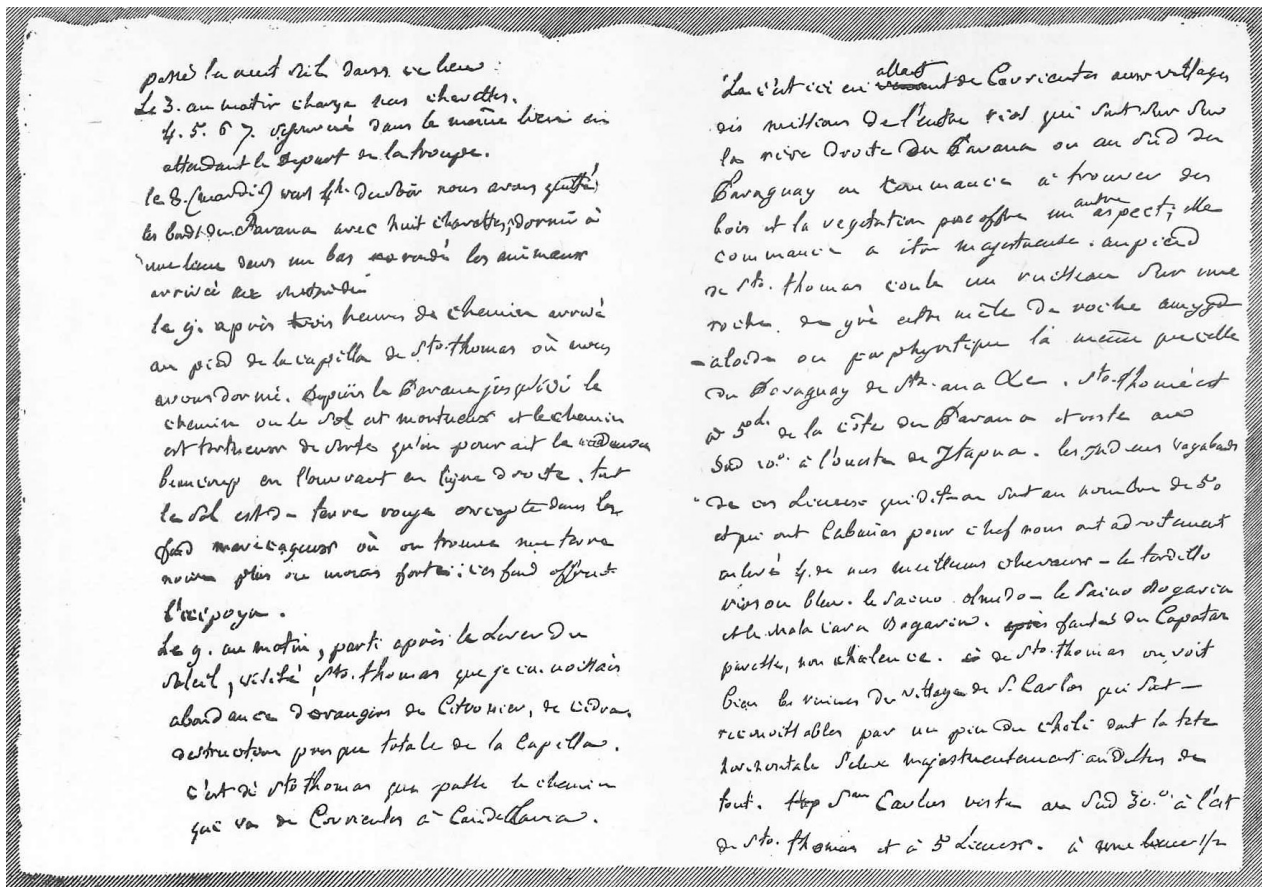 passé la nuit dans ce lieu.
Le 3. au matin charga nos charettes.
4. 5. 6 7. séjourné dans le meme lieu en
attendant le Depart de la troupe.
le 8. (mardi) vers 4h. du soir nous avons quitté
les bords du Parana avec huit charettes, dormir à
une lieue dans un bas les animaux
arrivée
le 9. après trois heures de chemin arrivé
au pied de la capilla de Sto. thomas où nous
avons dormi. Depuis le Parana jusqu'ici le
chemin ou le Sol est montueux et le chemin
est tortueux de sorte qu'on pourait le
beaucoup en l'ouvrant en ligne droite. tout
le Sol est de terre rouge excepté dans les
fond marecageux où on trouve une terre
noire plus ou moins forte: ces fond offrent
l'aipoya.
Le 9. au matin, parti après le Lever du
Soleil, visité Sto. thomas que je connoissais
abondance d'orangers de Citronier, de cidra,
destruction presque totale de la Capilla.
c'est de Sto thomas que passe le chemin
que va de Corrientes à Candellaria.
La c'est ici en allant de Corrientes aux villages
des missions de l'entre rios qui sont sur
la rive Droite du Parana ou au Sud du
Paraguay on commance à trouver des
bois et la vegetation offre un autre aspect; elle
commance a etre majestueuse. au pied
de Sto. thomas coule un ruisseau Sur une
roche de grè mele de roche amygd
-aloide ou porphyritique la meme que celle
du Paraguay de Sta. ana &c. Sto. thomé est
à 5 de la côte du Parana et reste au
Sud 10.° à l'ouest de Itapua. les Indiens vagabonds
de ces Lieux qui dit on sont au nombre de 50
et qui ont Cabañas pour chef nous ont adroitement
enlevé 4. de nos meilleurs chevaux - le tordillo
bleu. le Saino olmedo - le Saino Bogarin
et le Mala cara Bogarin. fautes du Capatas
paresse, non chalence. de Sto. thomas on voit
bien les ruines du village de S. Carlos qui sont
reconnoissables par un dont la tete
horizontale S'eleve majestueusement audessus de
tout. San Carlos reste au Sud 30.° à l'est
de Sto. thomas et à 5 Lieues. à une lieue 1/2